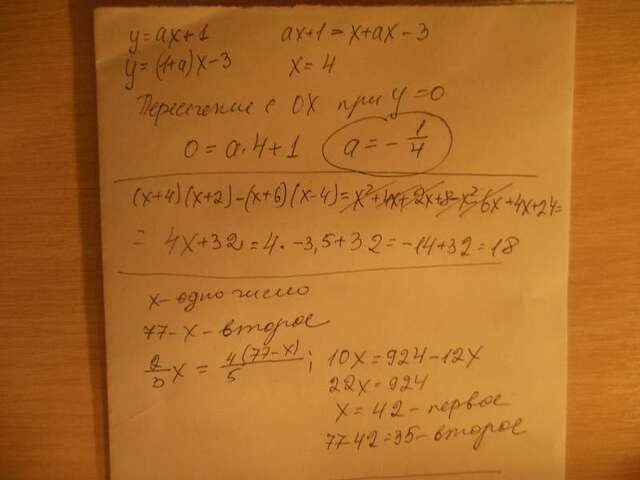 y=ax+1 ax+1=x+ax-3
y=(1+a)x-3 x=4
Пересечение с OX при y=0
0=a·4+1 a=-1/4
(x+4)(x+2)-(x+6)(x-4)=x²+4x+2x+8-x²-6x+4x+24=
= 4x+32=4·-3,5+32=-14+32=18
x-одно число
77-x-второе
2/3 x = 4(77-x)/5 ; 10x=924-12x
22x=924
x=42-первое
77-42=35-второе